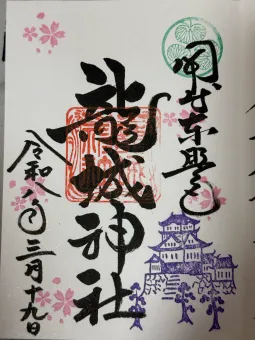 開武東照宮
龍城神社
令和八年三月十九日